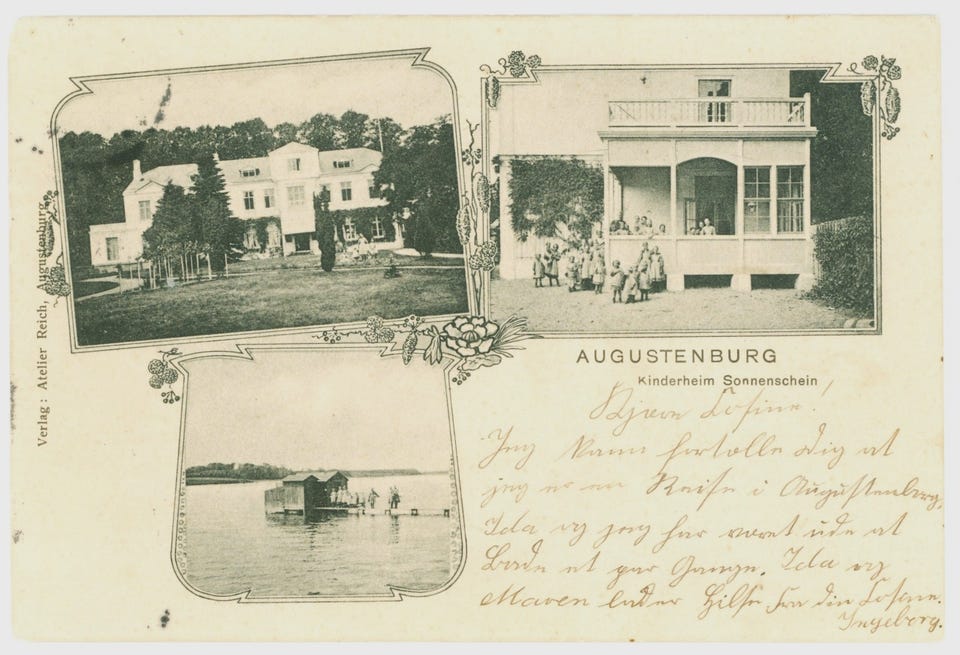 Verlag: Atelier Reich, Augustenburg
AUGUSTENBURG
Kinderheim Sonnenschein
Kjære Losine!
Jeg kann fortælle dig at
jeg er en Reise i Augustenborg.
Ida og jeg har været ude at
Bade et par Gange. Ida og
Maren lader Hilse fra din Losine.
Ingeborg.